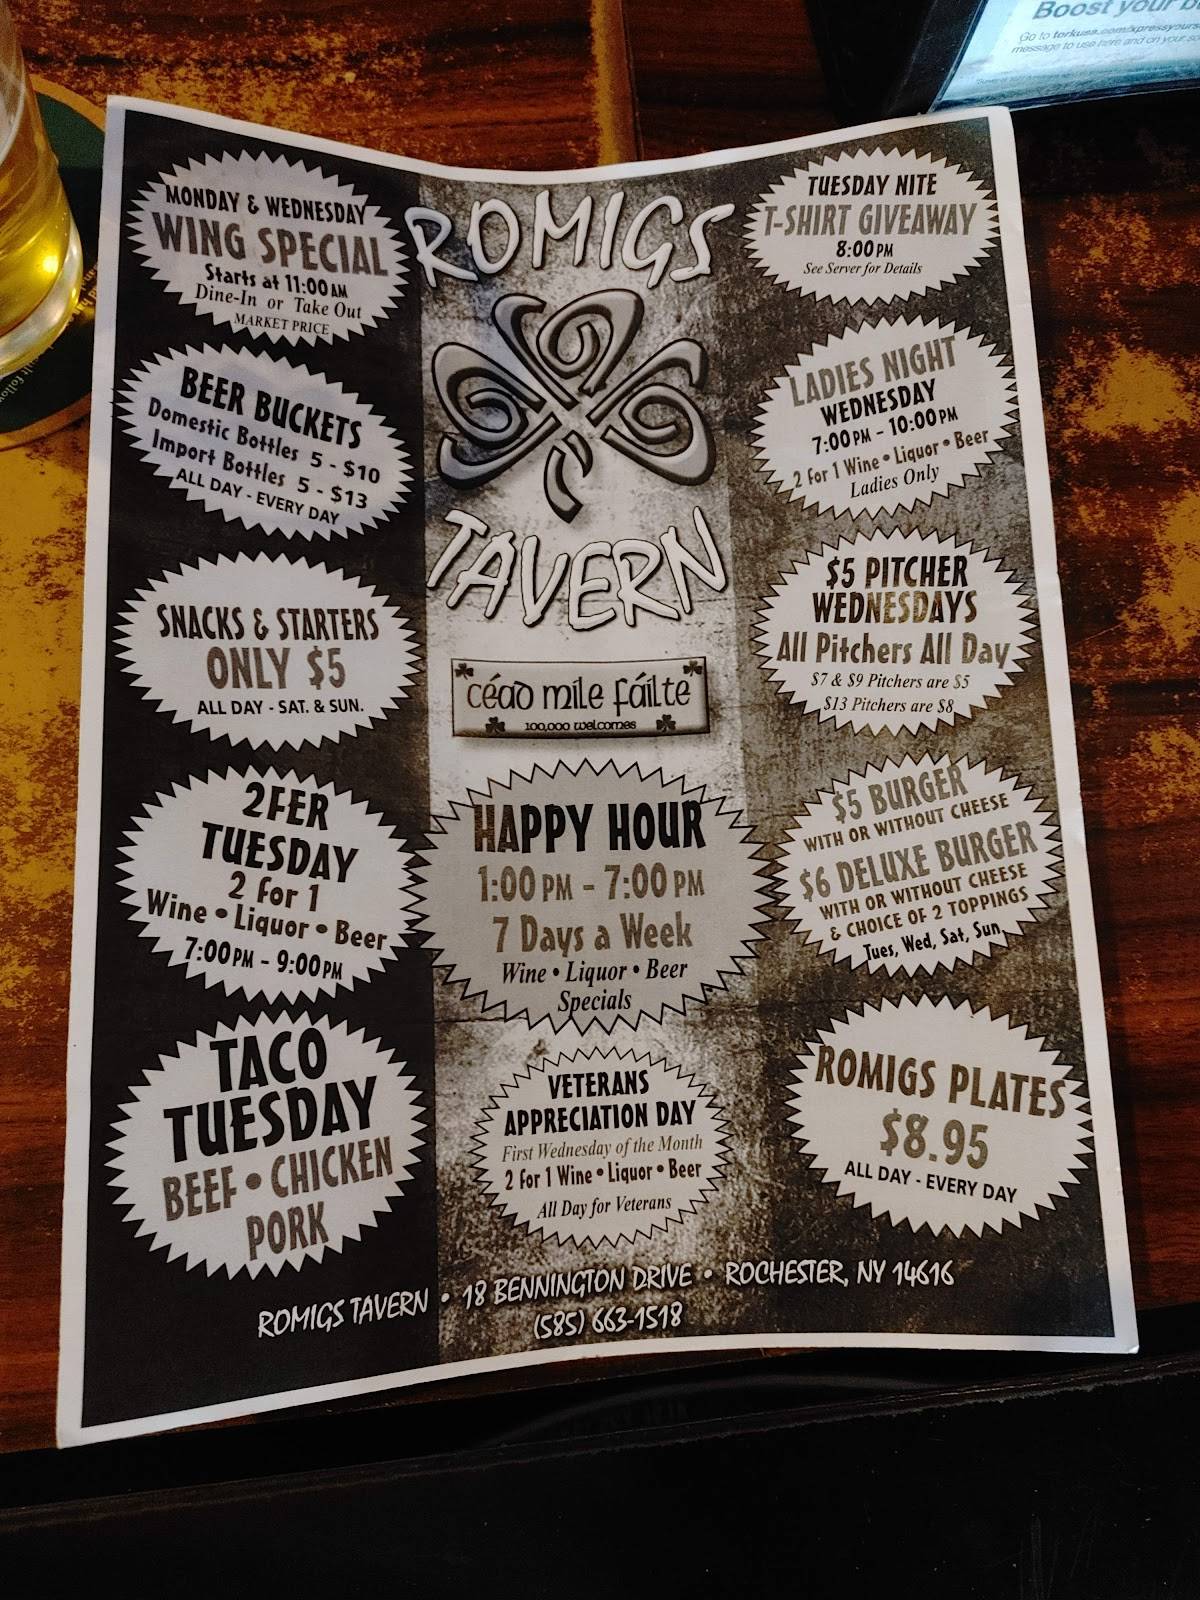 Boost your
Go to torkusa.com/xpressyours
message to use here and on your
MONDAY & WEDNESDAY
WING SPECIAL
Starts at 11:00 AM
Dine-In or Take Out
MARKET PRICE
ROMIGS
TAVERN
TUESDAY NITE
T-SHIRT GIVEAWAY
8:00 PM
See Server for Details
BEER BUCKETS
Domestic Bottles 5 - $10
Import Bottles 5 - $13
ALL DAY - EVERY DAY
LADIES NIGHT
WEDNESDAY
7:00 PM - 10:00 PM
2 for 1 Wine • Liquor • Beer
Ladies Only
SNACKS & STARTERS
ONLY $5
ALL DAY - SAT. & SUN.
céad míle fáilte
100,000 welcomes
$5 PITCHER
WEDNESDAYS
All Pitchers All Day
$7 & $9 Pitchers are $5
$13 Pitchers are $8
2FER
TUESDAY
2 for 1
Wine • Liquor • Beer
7:00 PM - 9:00 PM
HAPPY HOUR
1:00 PM - 7:00 PM
7 Days a Week
Wine • Liquor • Beer
Specials
$5 BURGER
WITH OR WITHOUT CHEESE
$6 DELUXE BURGER
WITH OR WITHOUT CHEESE
& CHOICE OF 2 TOPPINGS
Tues, Wed, Sat, Sun
TACO
TUESDAY
BEEF • CHICKEN
PORK
VETERANS
APPRECIATION DAY
First Wednesday of the Month
2 for 1 Wine • Liquor • Beer
All Day for Veterans
ROMIGS PLATES
$8.95
ALL DAY - EVERY DAY
ROMIGS TAVERN • 18 BENNINGTON DRIVE • ROCHESTER, NY 14616
(585) 663-1518